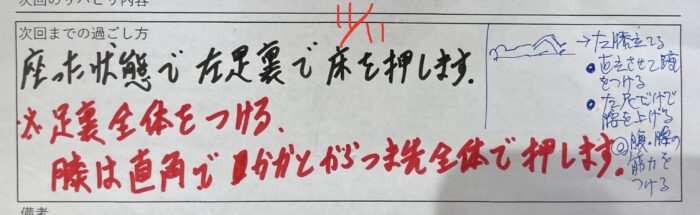 次回のリハビリ内容
次回までの過ごし方
11/11
座った状態で左足裏で床を押します.
※足裏全体をつける.
膝は直角でかかとからつま先全体で押します.
→左膝立てる
●直立させて踵
をつける
●左足だけで
腰を上げる
◎腹・腰の
筋力を
つける
備考